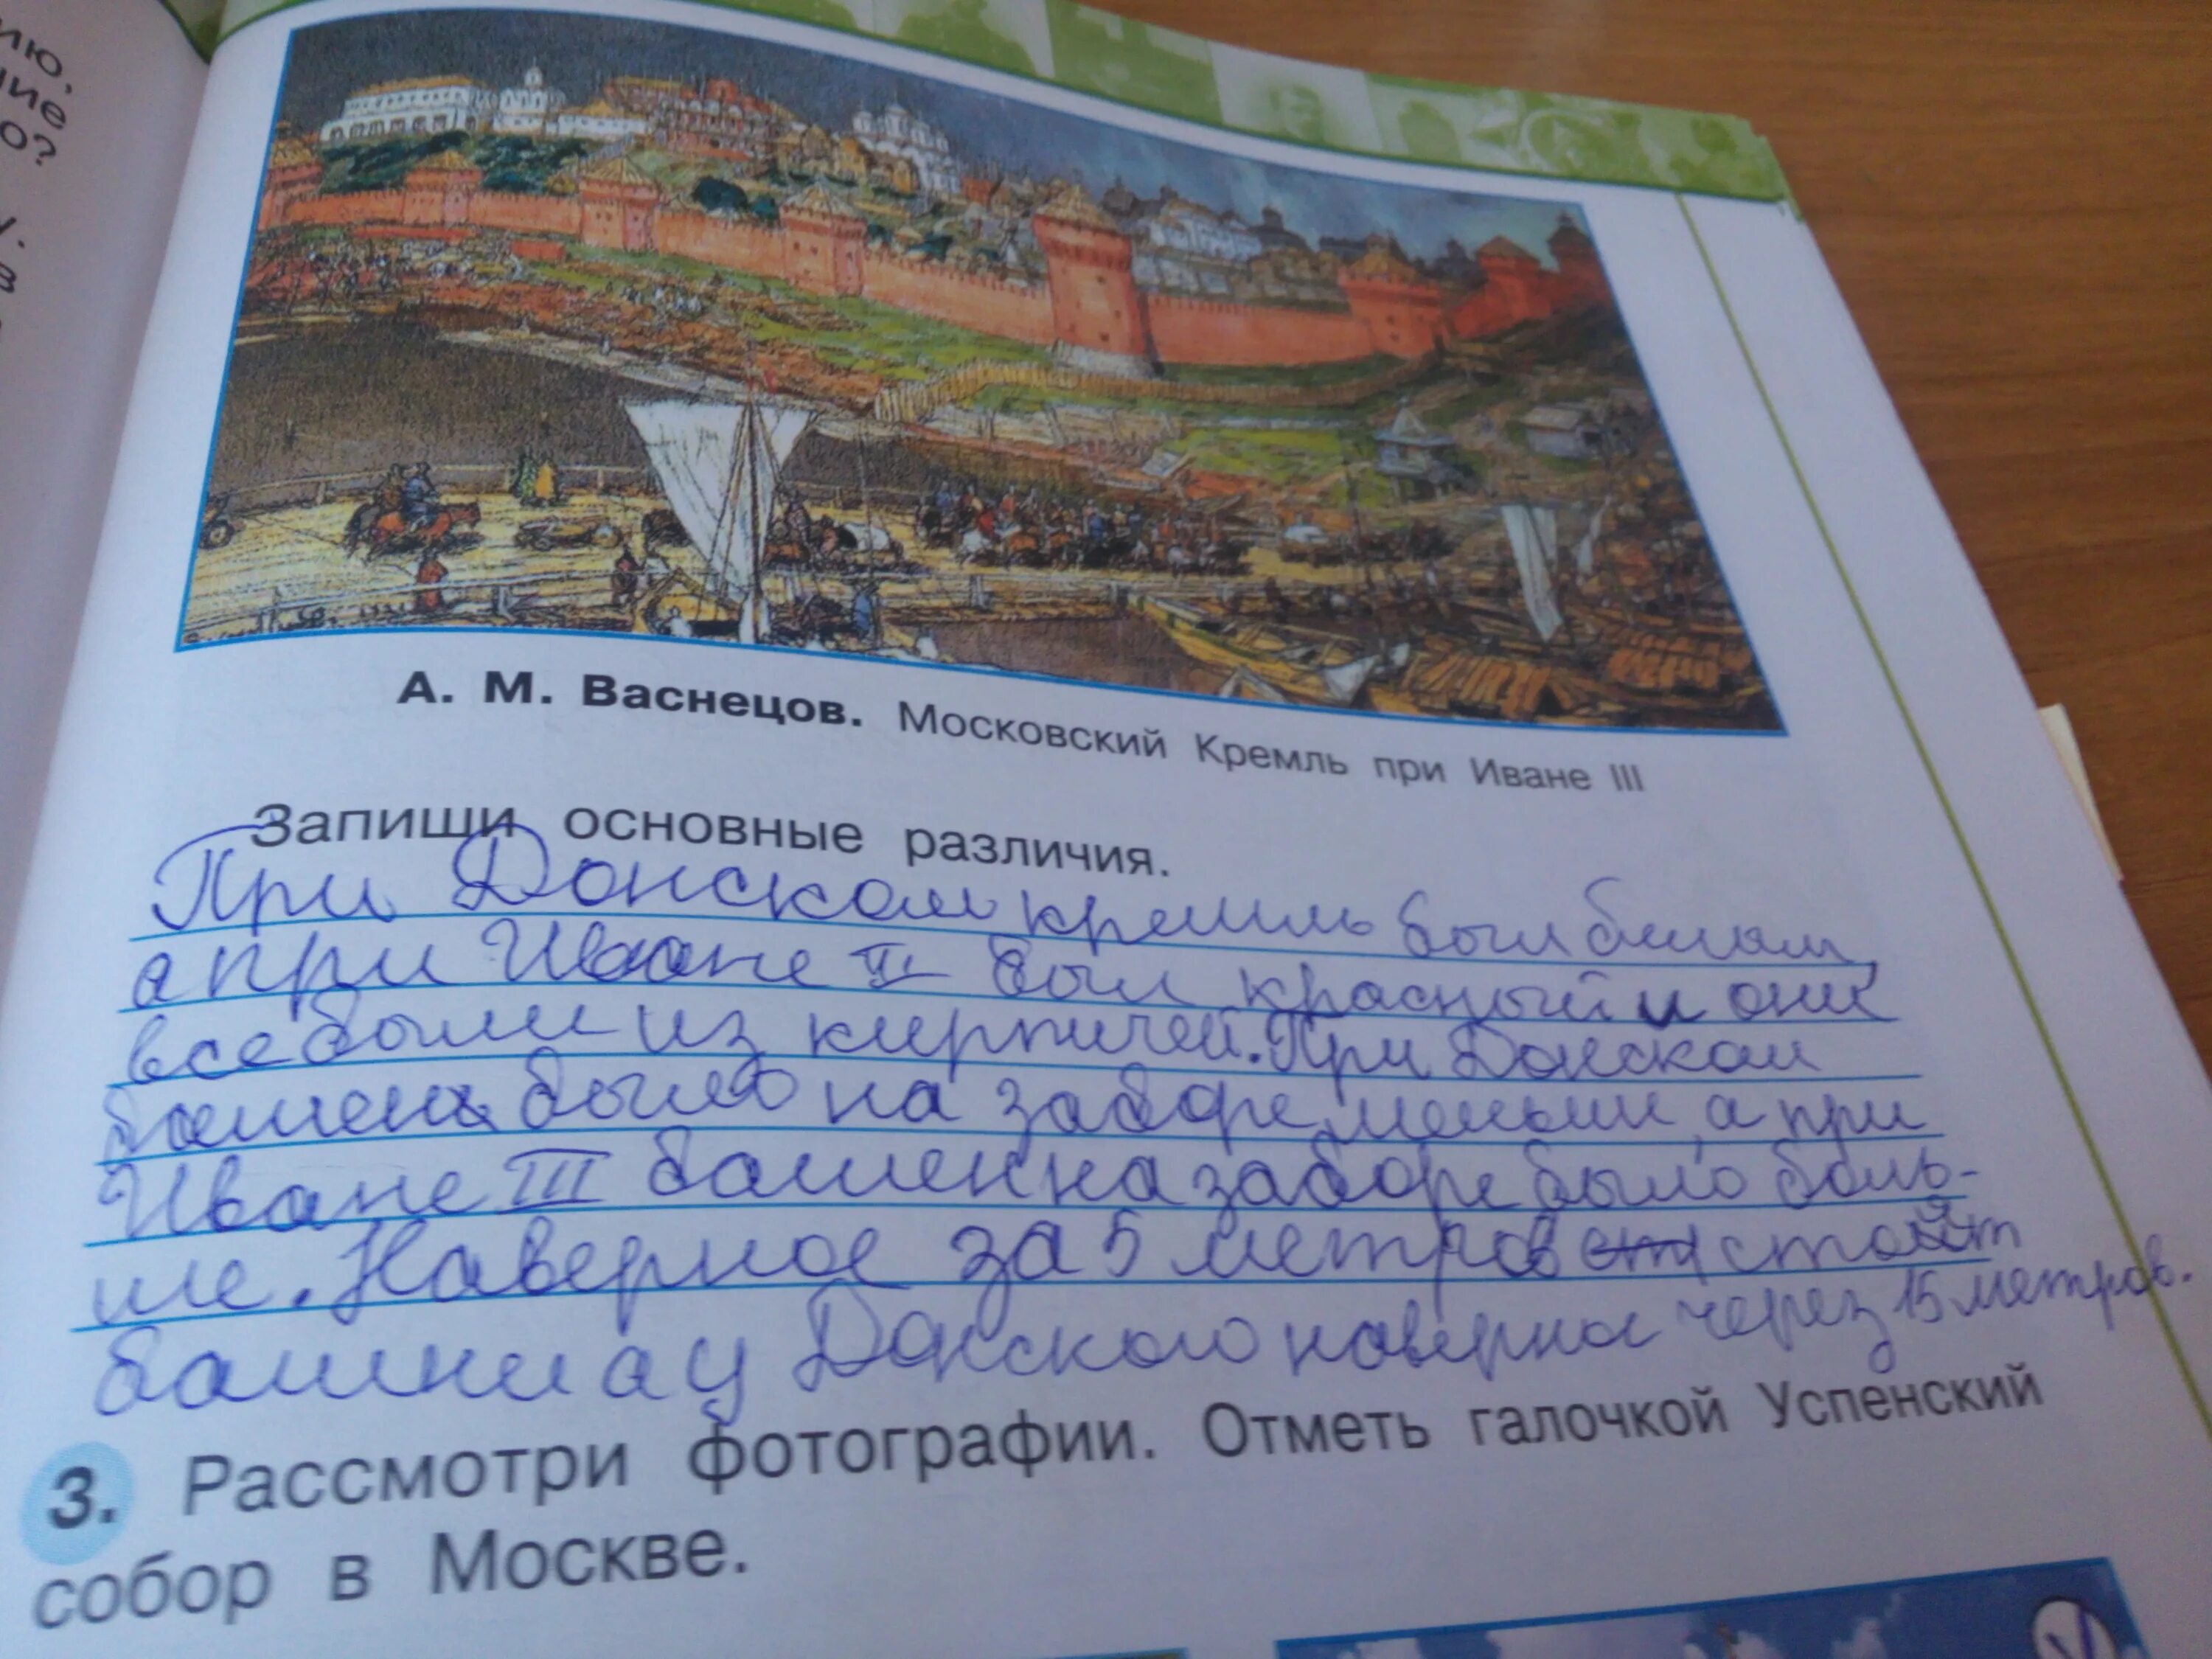 ию.
ние
о?
у.
в
А. М. Васнецов. Московский Кремль при Иване III
Запиши основные различия.
При Донском кремль был белым
а при Иване II был красный и они
все были из кирпичей. При Донском
башен было на заборе меньши, а при
Иване III башен на заборе было боль-
ше. Наверное за 5 метров стоят
башни а у Донского наверна через 15 метров.
3. Рассмотри фотографии. Отметь галочкой Успенский
собор в Москве.